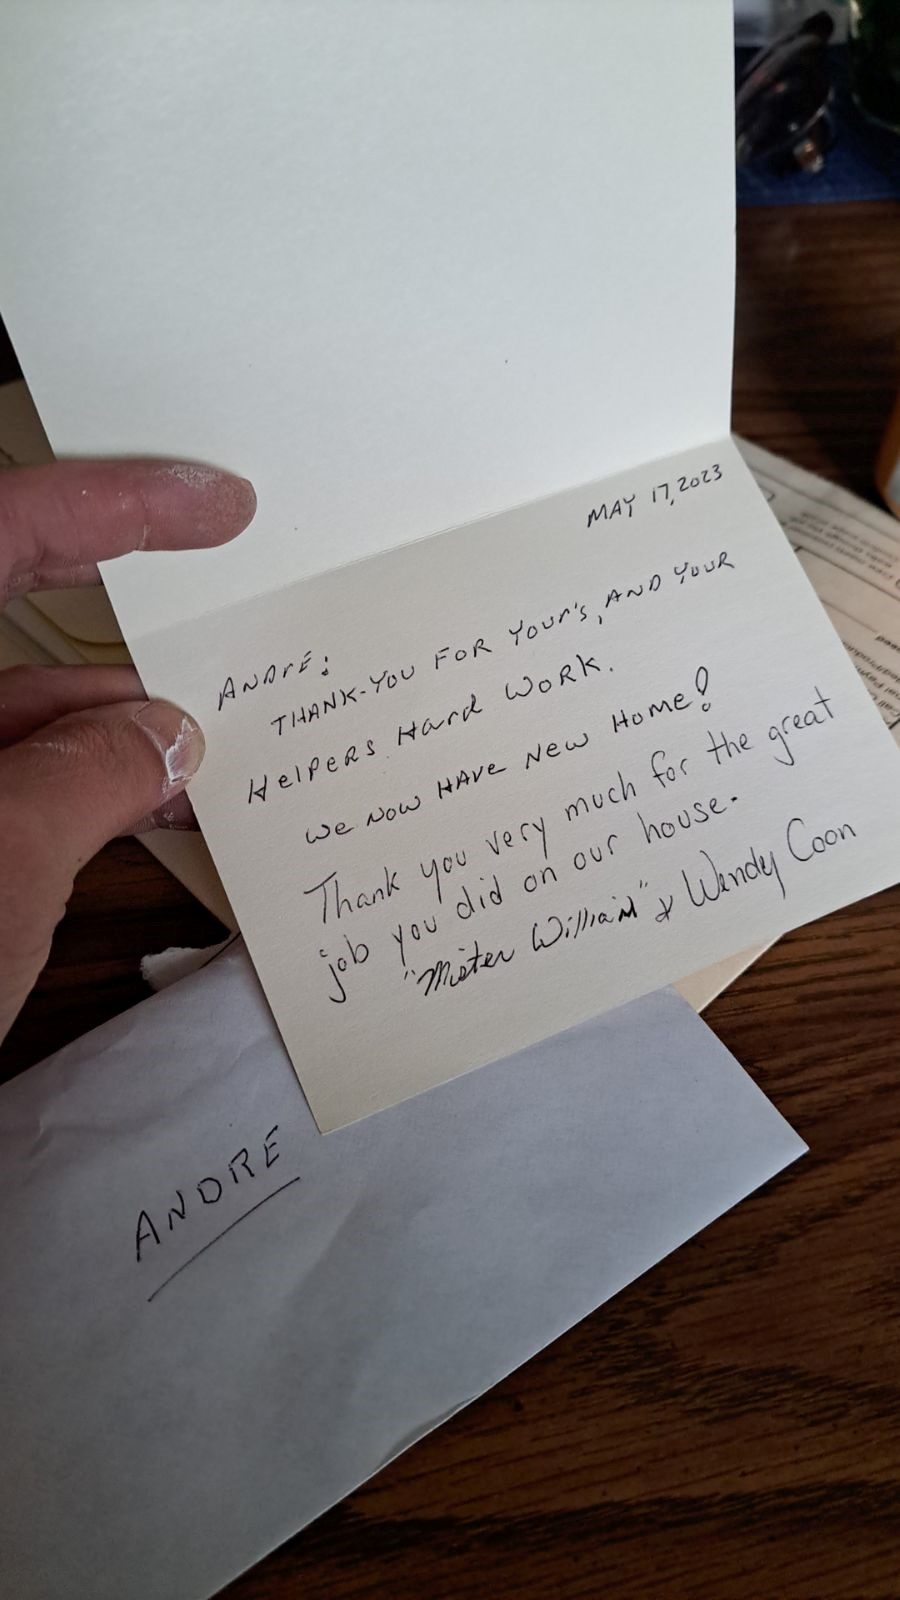 MAY 17, 2023
ANDrE:
THANK-YOU FOR YOUr's, AND YOUR
HelPERS Hard WORK.
We NOW HAVe NeW HOMe!
Thank you very much for the great
job you did on our house.
"Mister William" & Wendy Coon
ANDRE